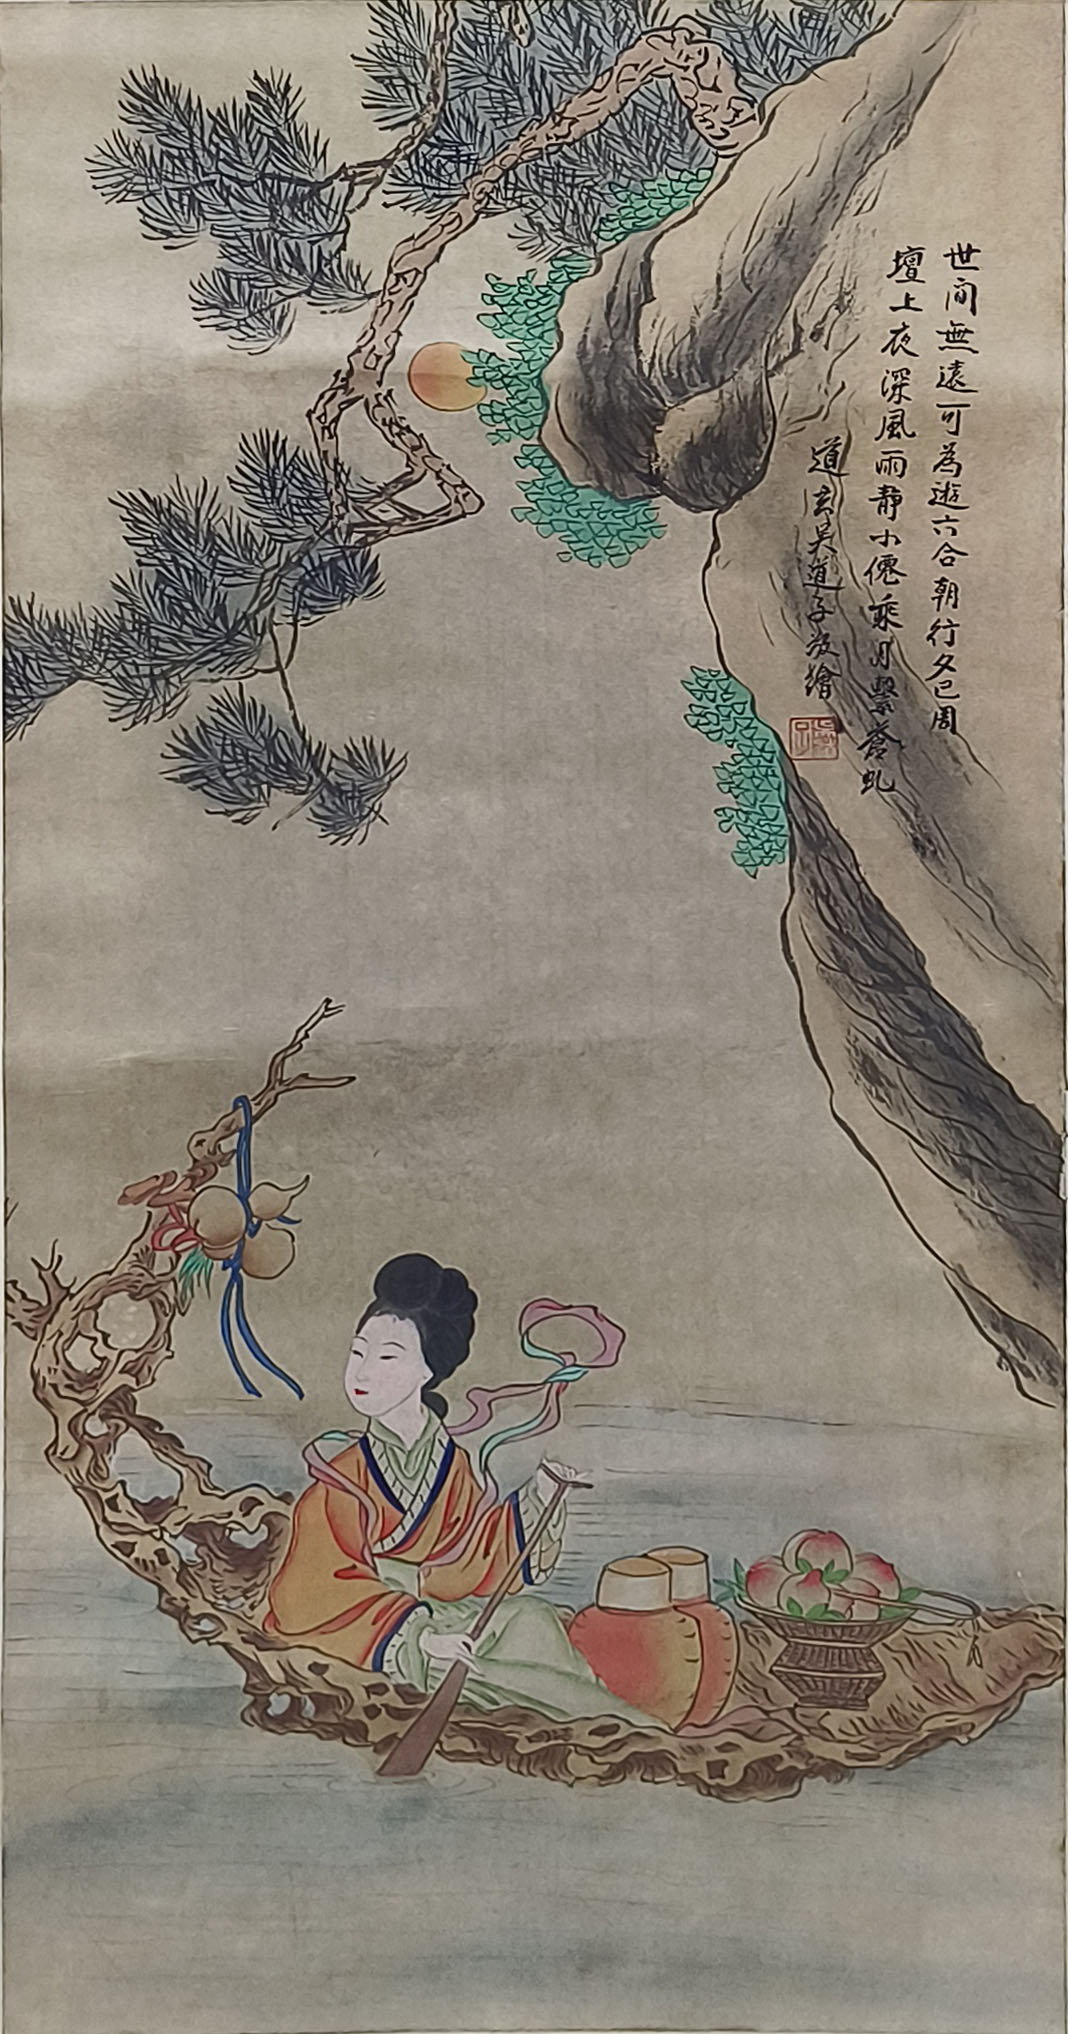 世間無遠可為遊六合朝行夕已周
壇上夜深風雨靜小僊乘月繫蒼虬
道玄吳道子敬繪